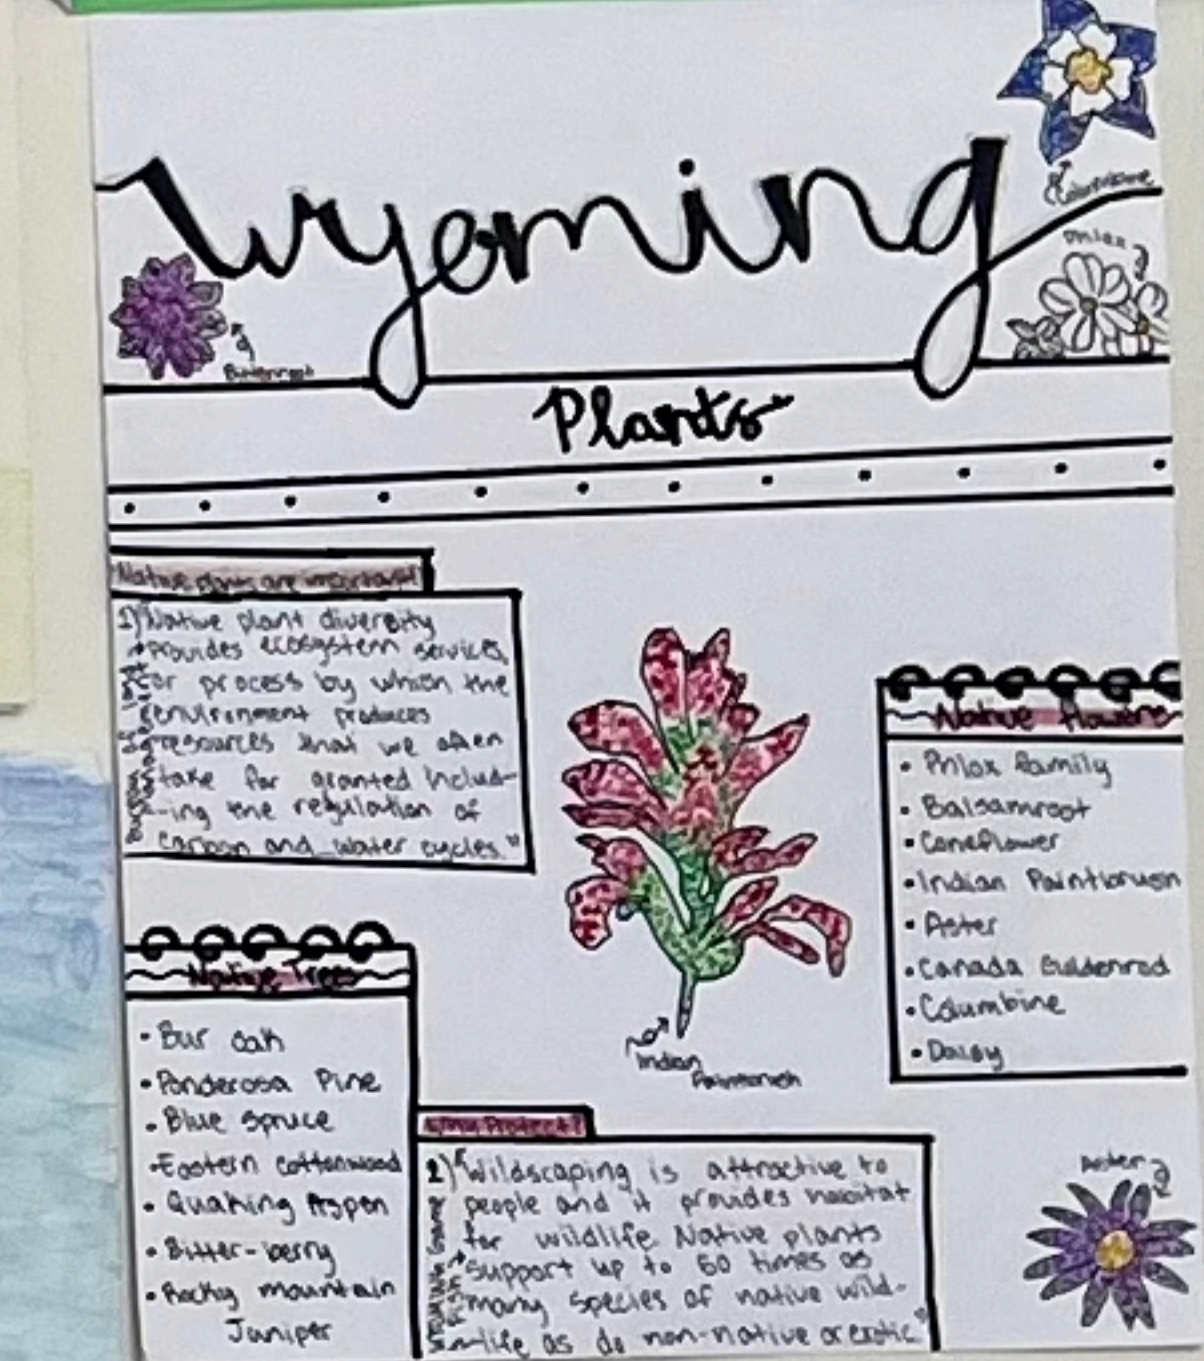 Wyoming
Columbine
Phlox
Bitterroot
Plants
Native plants are important!
1) "Native plant diversity
provides ecosystem services,
or process by which the
environment produces
resources that we often
take for granted includ-
-ing the regulation of
carbon and water cycles."
Native Flowers
• Phlox family
• Balsamroot
• Coneflower
• Indian Paintbrush
• Aster
• Canada Guldenrod
• Columbine
• Daisy
Indian
Paintbrush
Native Trees
• Bur oak
• Ponderosa Pine
• Blue Spruce
• Eastern Cottonwood
• Quaking Aspen
• Bitter-berry
• Rocky mountain
Juniper
Why Protect?
2) "Wildscaping is attractive to
people and it provides habitat
for wildlife. Native plants
support up to 60 times as
many species of native wild-
-life as do non-native or exotic"
Wyoming Game
Fish
Aster